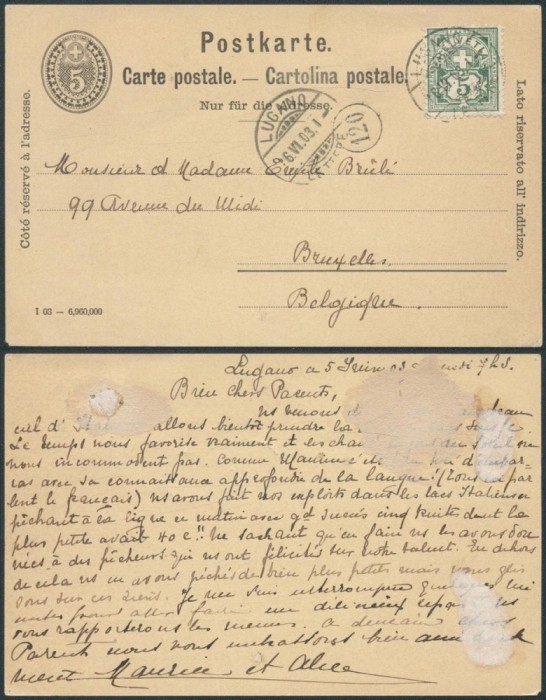 Postkarte.
Carte postale. — Cartolina postale.
Nur für die Adresse.
Côté réservé à l'adresse.
Lato riservato all' indirizzo.
5
HELVETIA
5
LUGANO
6.VI.03. I
LETTERE
120
Monsieur & Madame Emile Brûlé
99 Avenue du Midi
Bruxelles.
Belgique.
I 03 — 6,960,000
Lugano ce 5 Juin 03 7 h S.
Bien chers Parents,
ns venons
ciel d' allons bientôt prendre la
Le temps nous favorise vraiment et les
nous incommodent pas. Comme Maurice
ras avec sa connaissance approfondie de la langue! (tous
lent le français) ns avons fait nos exploits dans les lacs Italiens en
pêchant à la ligne ce matin avec gd succès cinq truites dont la
plus petite avait 40 c!! Ne sachant qu'en faire ns les avons don
nées à des pêcheurs qui ns ont félicités sur notre talent. En dehors
de cela ns en avons pêchés de bien plus petits mais nous
sur ces Je dois interrompre quelques
un délicieux repas
vous rapporterons les menus. A demain chers
Parents nous vous embrassons bien
ment Maurice et Alice